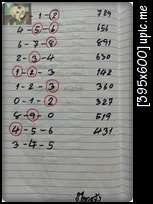 - 1 - 2 729
4 - 5 - 6 656
6 - 7 - 8 891
2 - 3 - 4 630
1 - 2 - 3 142
1 - 2 - 3 360
0 - 1 - 2 327
8 - 9 - 0 519
4 - 5 - 6 431
3 - 4 - 5
[395x600] upic.me